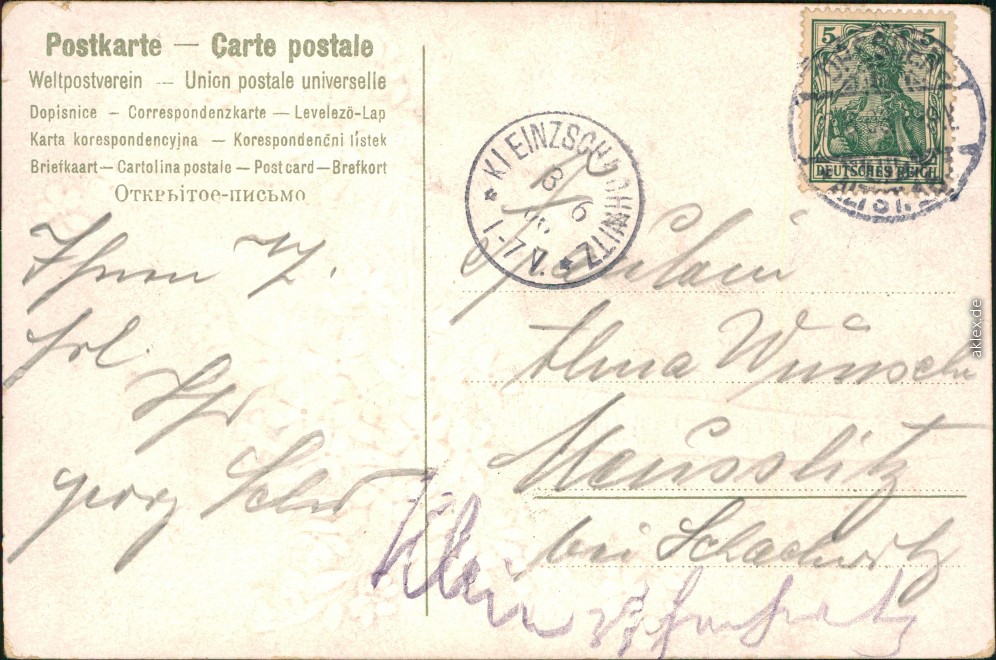 Postkarte — Carte postale
Weltpostverein — Union postale universelle
Dopisnice – Correspondenzkarte — Levelező-Lap
Karta korespondencyjna – Korespondenční lístek
Briefkaart — Cartolina postale – Post card – Brefkort
Открытое-письмо
5 5
DEUTSCHES REICH
ALTST.
KLEINZSCHACHWITZ
8 6
1-7 V.
Fräulein
Alma Wünsche
Meusslitz
bei Schachwitz
Klein
Ihnen
Frl.
Georg
aklex.de